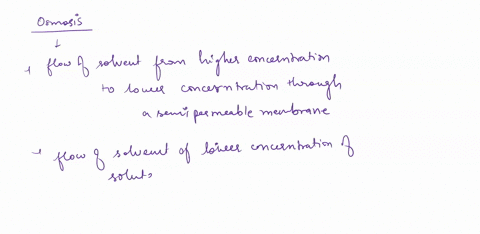 Osmosis
flow of solvent from higher concentration
to lower concentration through
a semipermeable membrane
flow of solvent of lower concentration of
solute